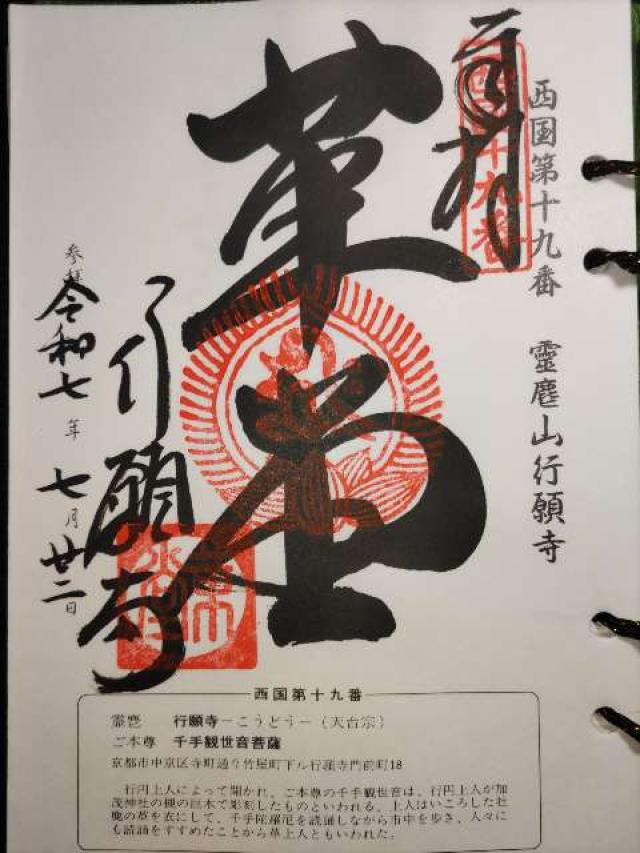 西国第十九番　靈麀山行願寺
奉拝
革堂
行願寺
参拝
令和七年七月廿二日
西国第十九番
靈麀山　行願寺－こうどう－（天台宗）
ご本尊　千手観世音菩薩
京都市中京区寺町通り竹屋町下ル行願寺門前町18
行円上人によって開かれ、ご本尊の千手観世音は、行円上人が加
茂神社の槻の巨木で彫刻したものといわれる。上人はいころした牝
鹿の革を衣にして、千手陀羅尼を読誦しながら市中を歩き、人々に
も読誦をすすめたことから革上人ともいわれた。